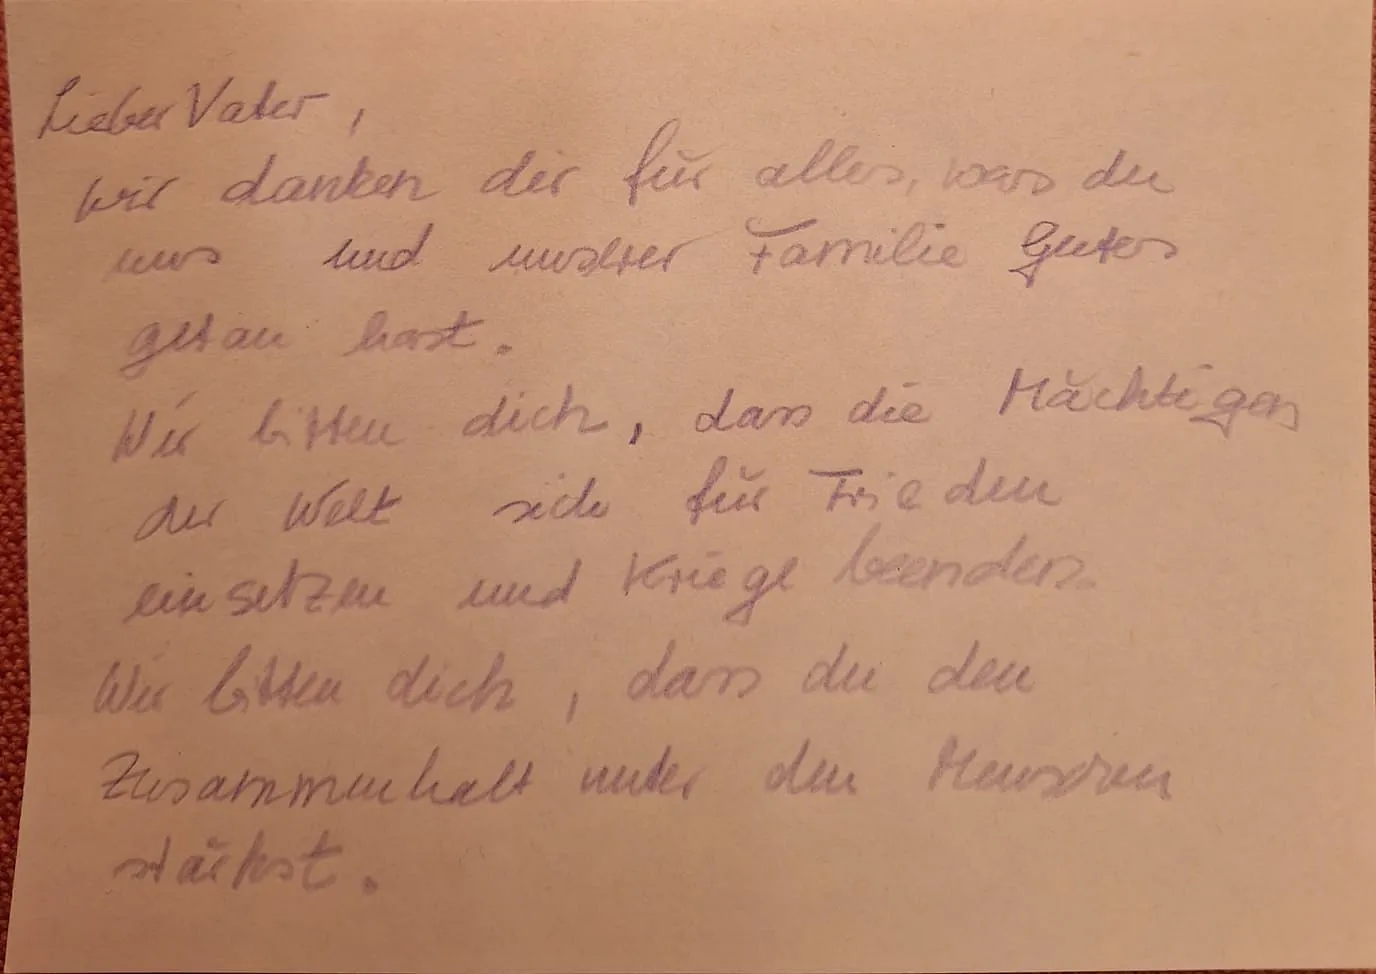 Lieber Vater,
wir danken dir für alles, was du
uns und unserer Familie Gutes
getan hast.
Wir bitten dich, dass die Mächtigen
der Welt sich für Frieden
einsetzen und Kriege beenden.
Wir bitten dich, dass du den
Zusammenhalt unter den Menschen
stärkst.